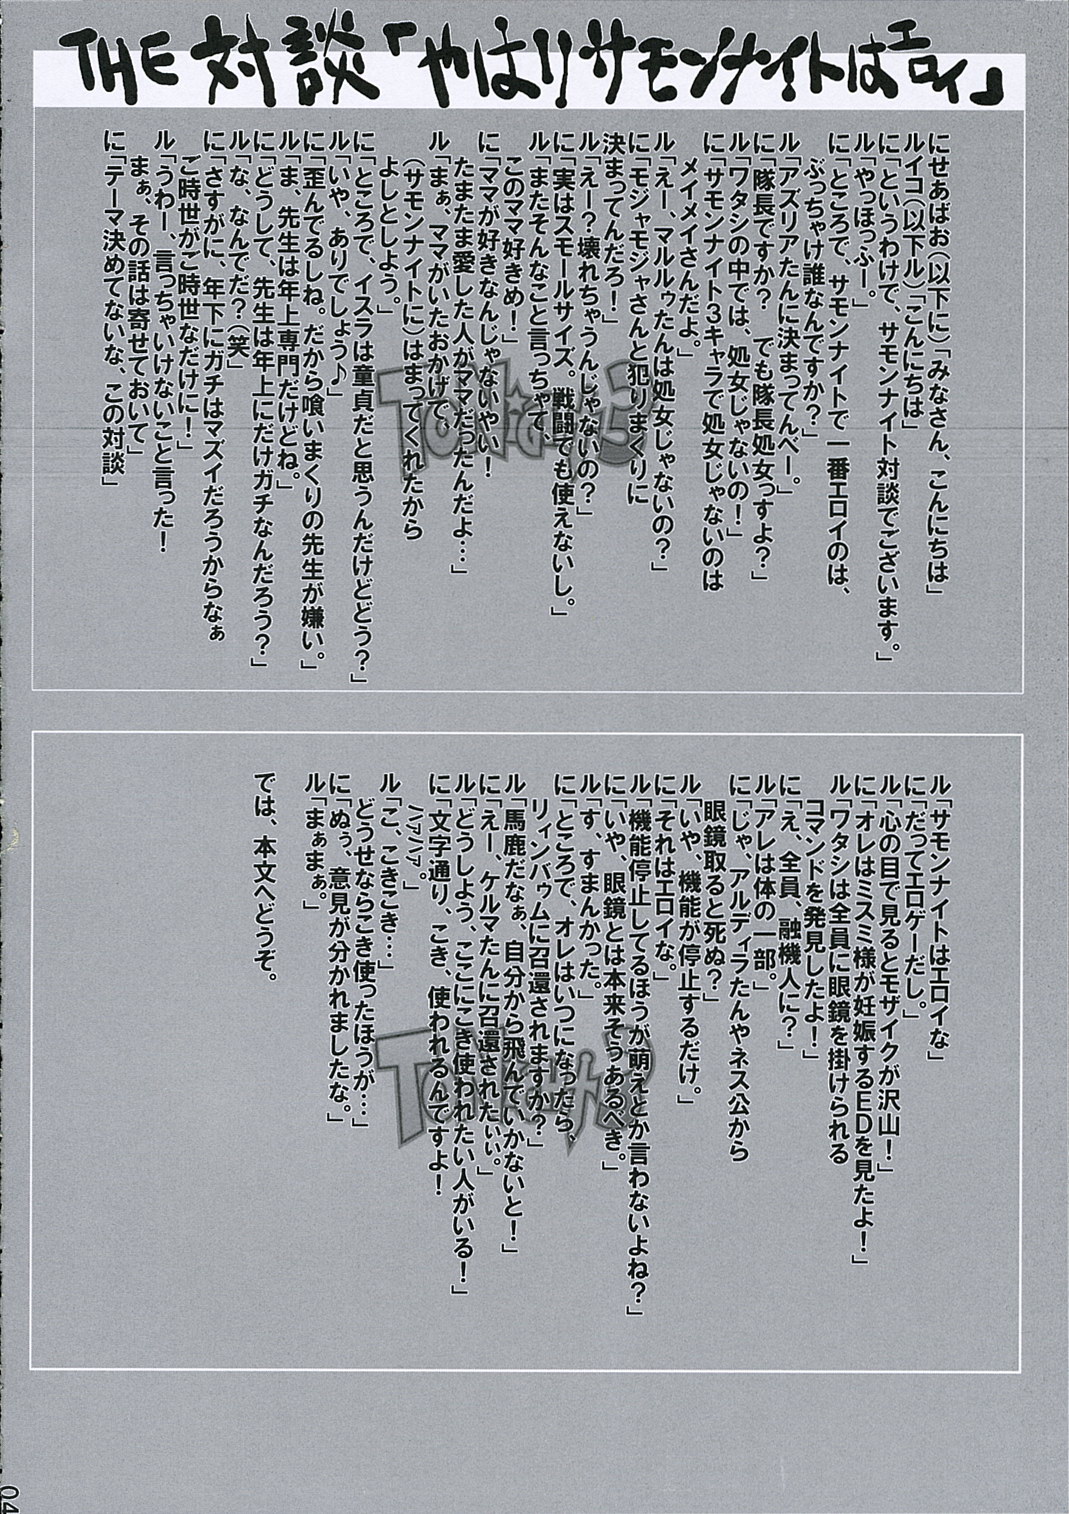 THE 対談「やはりサモンナイトはエロイ」
にせあぱお(以下に)「みなさん、こんにちは」
ルイコ(以下ル)「こんにちは」
に「というわけで、サモンナイト対談でございます。」
ル「やっほっふー。」
に「ところで、サモンナイトで一番エロイのは、
ぶっちゃけ誰なんですか?」
ル「アズリアたんに決まってんべー。」
に「隊長ですか? でも隊長処女っすよ?」
ル「ワタシの中では、処女じゃないの!」
に「サモンナイト3キャラで処女じゃないのは
メイメイさんだよ。」
ル「えー、マルルゥたんは処女じゃないの?」
に「モジャモジャさんと犯りまくりに
決まってんだろ!」
ル「えー?壊れちゃうんじゃないの?」
に「実はスモールサイズ。戦闘でも使えないし。」
ル「またそんなこと言っちゃて、
このママ好きめ!」
に「ママが好きなんじゃないやい!
たまたま愛した人がママだったんだよ…」
ル「まぁ、ママがいたおかげで、
(サモンナイトに)はまってくれたから
よしとしよう。」
に「ところで、イスラは童貞だと思うんだけどどう?」
ル「いや、ありでしょう♪」
に「歪んでるしね。だから喰いまくりの先生が嫌い。」
ル「ま、先生は年上専門だけどね。」
に「どうして、先生は年上にだけガチなんだろう?」
ル「な、なんでだ?(笑)」
に「さすがに、年下にガチはマズイだろうからなぁ
ご時世がご時世なだけに!」
ル「うわー、言っちゃいけないこと言った!
まぁ、その話は寄せておいて」
に「テーマ決めてないな、この対談」
ル「サモンナイトはエロイな」
に「だってエロゲーだし。」
ル「心の目で見るとモザイクが沢山!」
に「オレはミスミ様が妊娠するEDを見たよ!」
ル「ワタシは全員に眼鏡を掛けられる
コマンドを発見したよ!」
に「え、全員、融機人に?」
ル「アレは体の一部。」
に「じゃ、アルディラたんやネス公から
眼鏡取ると死ぬ?」
ル「いや、機能が停止するだけ。」
に「それはエロイな。」
ル「機能停止してるほうが萌えとか言わないよね?」
に「いや、眼鏡とは本来そうあるべき。」
ル「す、すまんかった。」
に「ところで、オレはいつになったら、
リィンバゥムに召還されますか?」
ル「馬鹿だなぁ、自分から飛んでいかないと!」
に「えー、ケルマたんに召還されたぃぃ。」
ル「どうしよう、ここにこき使われたい人がいる!」
に「文字通り、こき、使われるんですよ!
ハァハァ。」
ル「こ、こきこき…」
どうせならこき使ったほうが…」
に「ぬぅ、意見が分かれましたな。」
ル「まぁまぁ。」
では、本文へどうぞ。
04